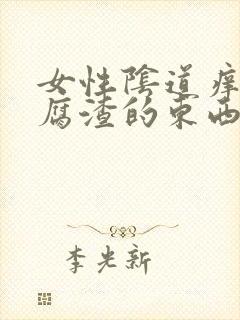 女性陰道痒
腐渣的東西
李光新